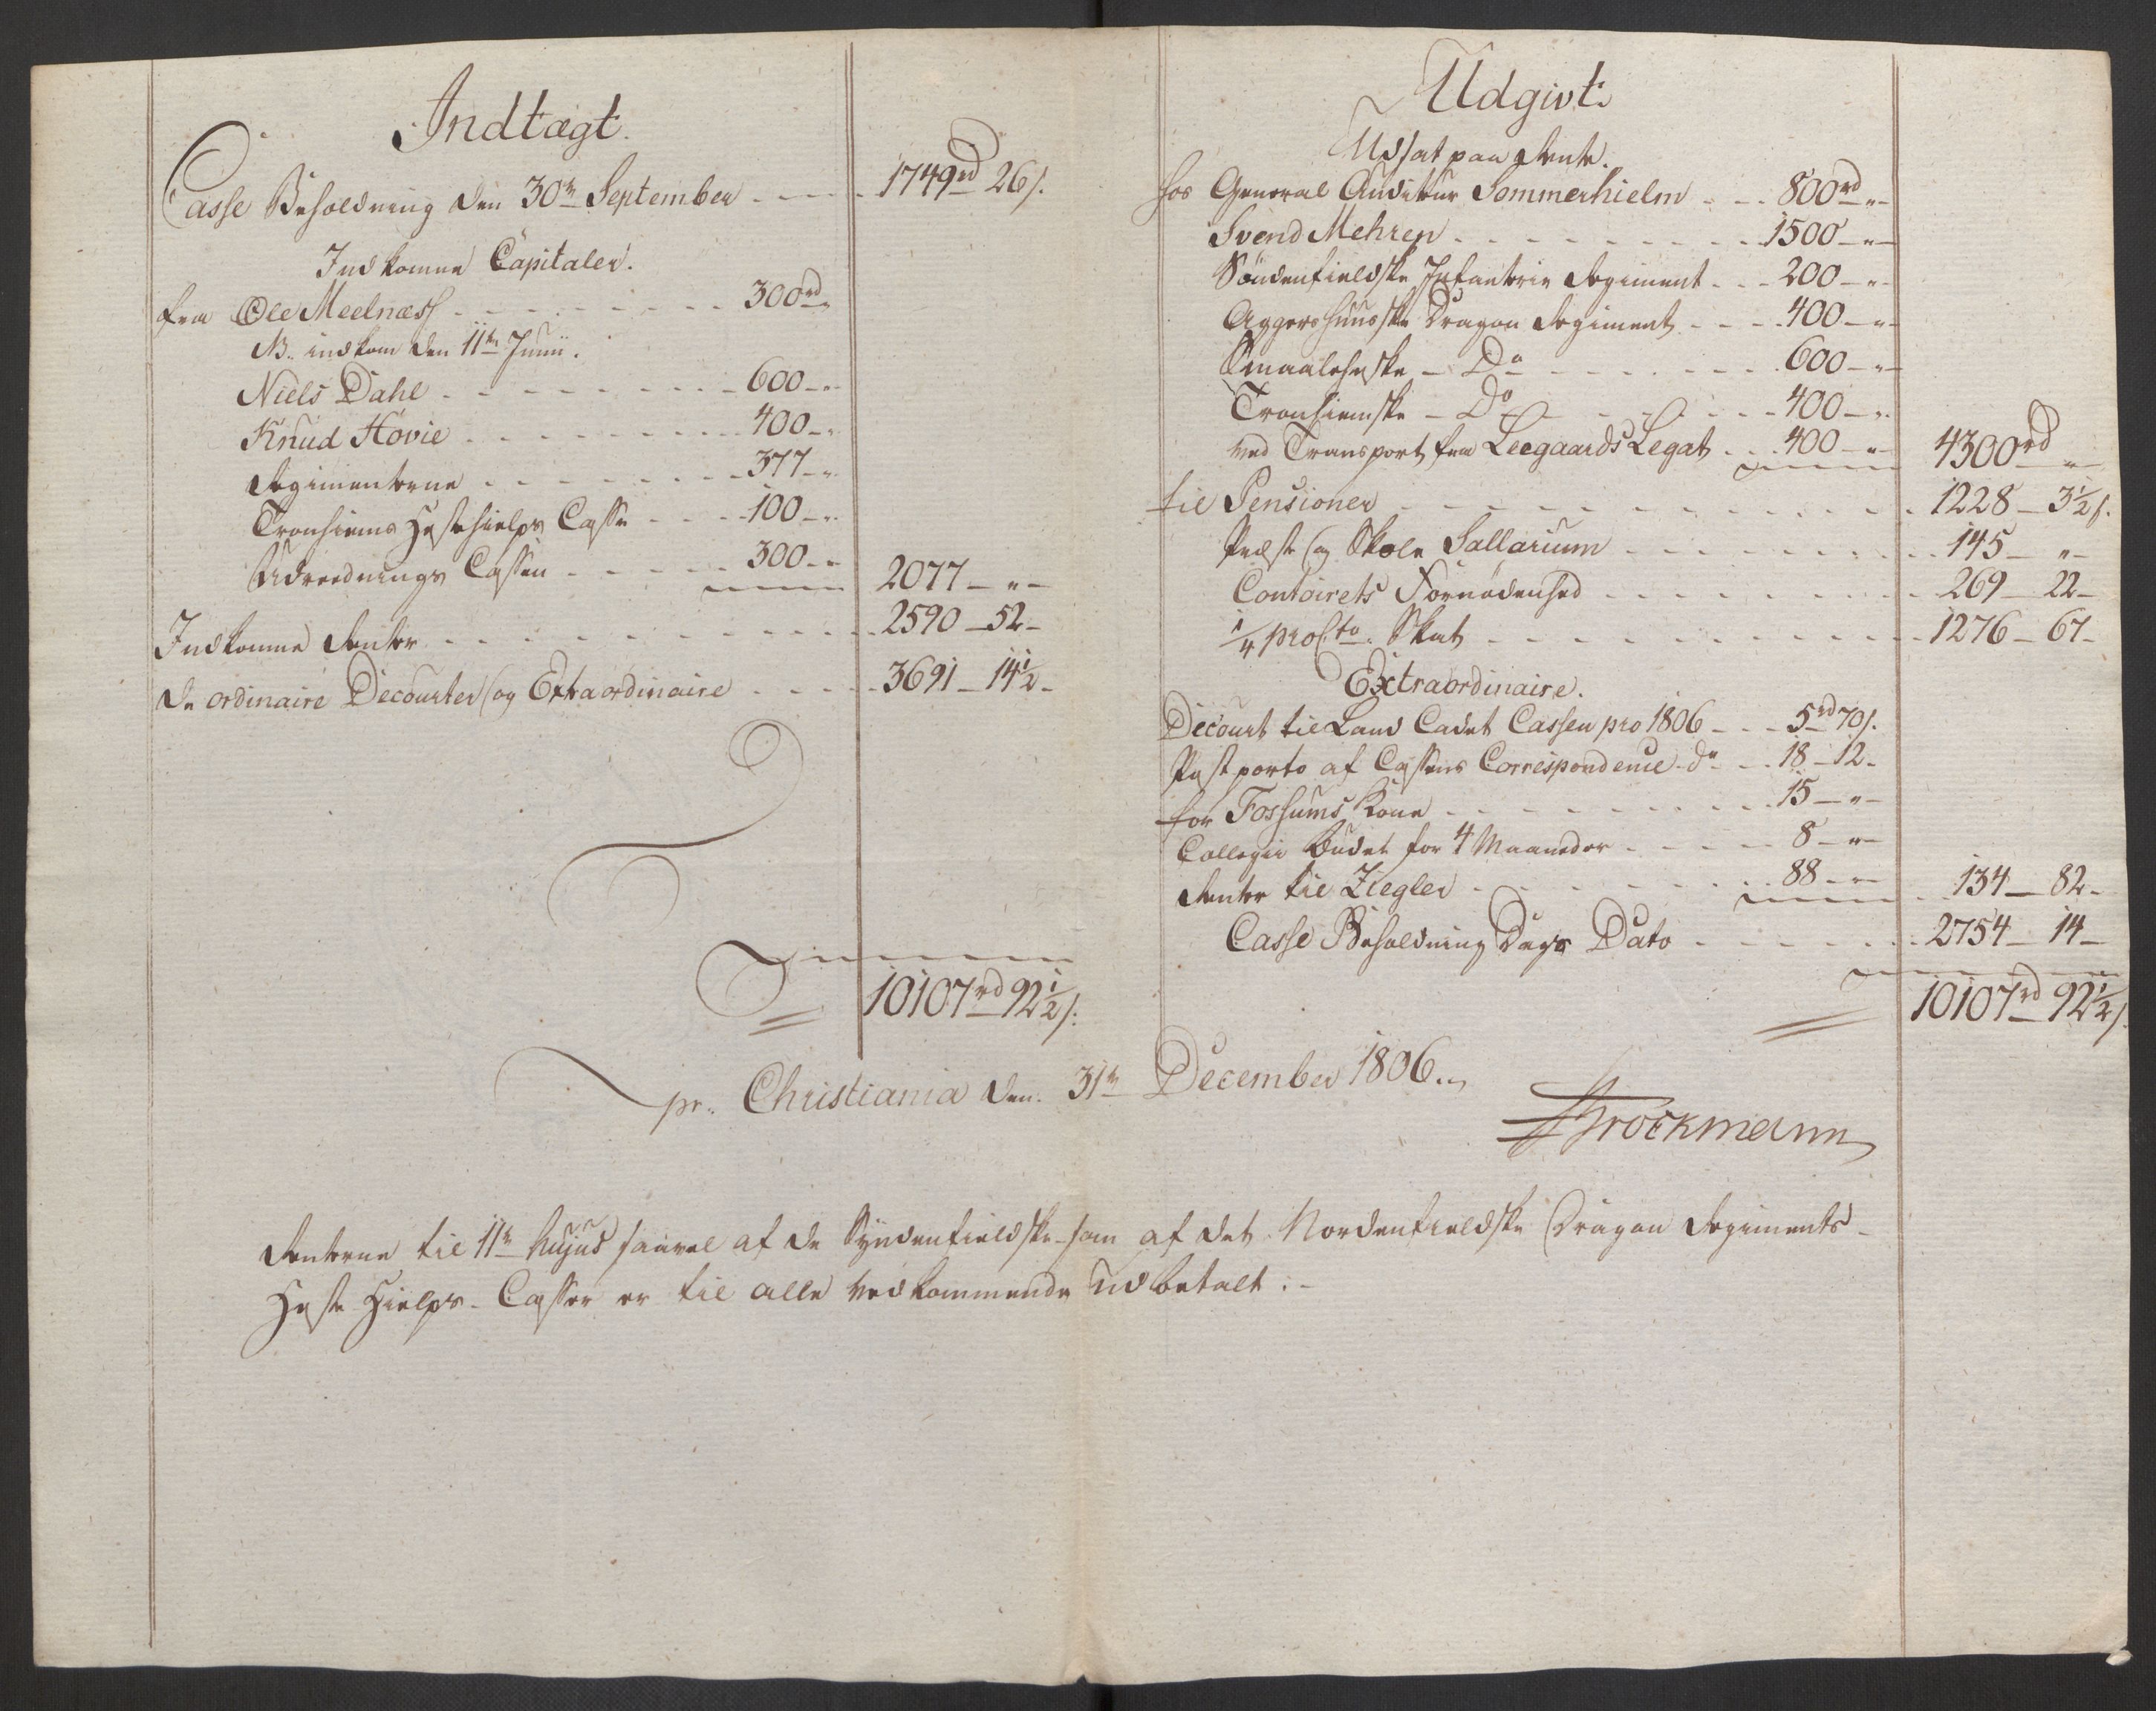 Indtægt.
Casse Beholdning den 30te September - - - - 1749rd 26s.
Indkomne Capitaler.
fra Ole Meelnæss - - - - - - 300rd "
NB. indkom den 11te Junii.
Niels Dahl - - - - - - 600 - "
Knud Hovie - - - - - - 400 - "
Regimenterne - - - - - - 377 - "
Tronhiems Hestehielps Casse - - - 100 - "
Udrednings Cassen - - - - - 300 - " 2077 - " -
Indkomne Renter - - - - - - 2590 - 52 -
De ordinaire Decourter og Extraordinaire - - - - 3691 - 14½ -
10107rd 92½s.
Udgivt.
Udsat paa Rente.
hos General Auditeur Sommerhielm - - - 800rd " -
Svend Mehren - - - - - - 1500 - " -
Söndenfieldske Infanterie Regiment - - - 200 - " -
Aggershuusske Dragon Regiment - - - 400 - " -
Smaalehnske - Do - - - - - 600 - " -
Tronhiemske - Do - - - - - 400 - "
ved Transport fra Leegaards Legat - - - 400 - " 4300rd "
til Pensioner - - - - - - 1228 - 3½s.
Præste og Skole Sallarium - - - - - - 145 - " -
Contoirets Fornödenhed - - - - - - 269 - 22 -
¼ pro Cto. Skat - - - - - - 1276 - 67 -
Extraordinaire.
Decourt til Land Cadet Cassen pro 1806 - - - 5rd 70s.
Post porto af Cassens Correspondence do - - 18 - 12 -
for Fossums Kone - - - - - - 15 - " -
Collegii Budet for 4 Maaneder - - - - - 8 - " -
Renter til Ziegler - - - - - - 88 - " - 134 - 82 -
Casse Beholdning Dags Dato - - - - - - 2754 - 14 -
10107rd 92½s.
pr. Christiania den 31te December 1806.
Brockmann
Renterne til 11te hujus saavel af de Syndenfieldske som af det Nordenfieldske Dragon Regiments -
Heste Hielps - Casser er til alle vedkommende udbetalt. -